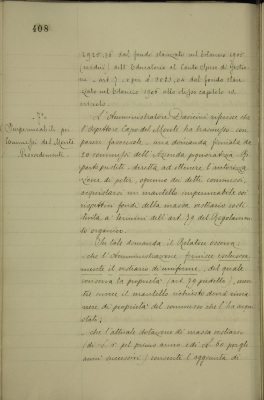 408
1925.76 dal fondo stanziato nel bilancio 1905
(residui) dell'Educatorio al Conto Spese di Gestio-
ne, art. 7, e per £ 2023,04 dal fondo stan-
ziato nel bilancio 1906 allo stesso capitolo ed
articolo.
7°
Impermeabili pei
Commessi del Monte
Provvedimenti
L'Amministratore Diannini riferisce che
l'Ispettore Capo del Monte ha trasmesso, con
parere favorevole, una domanda firmata da
20 commessi dell'Azienda pignoratizia
diretta ad ottenere l'autorizza-
zione di poter, ognuno dei detti commessi,
acquistarsi un mantello impermeabile coi
rispettivi fondi della massa vestiario costi-
tuita a termini dell'art. 79 del Regolamen-
to organico.
Su tale domanda il Relatore osserva:
che l'Amministrazione fornisce esclusiva-
mente il vestiario di uniforme, del quale
conserva la proprietà (art. 79 predetto), men-
tre invece il mantello richiesto dovrebbe rima-
nere di proprietà del commesso che l'ha acqui-
stato;
che l'attuale dotazione di massa vestiario
(di £ pel primo anno e di £ 60 per gli
anni successivi) consente l'aggiunta di